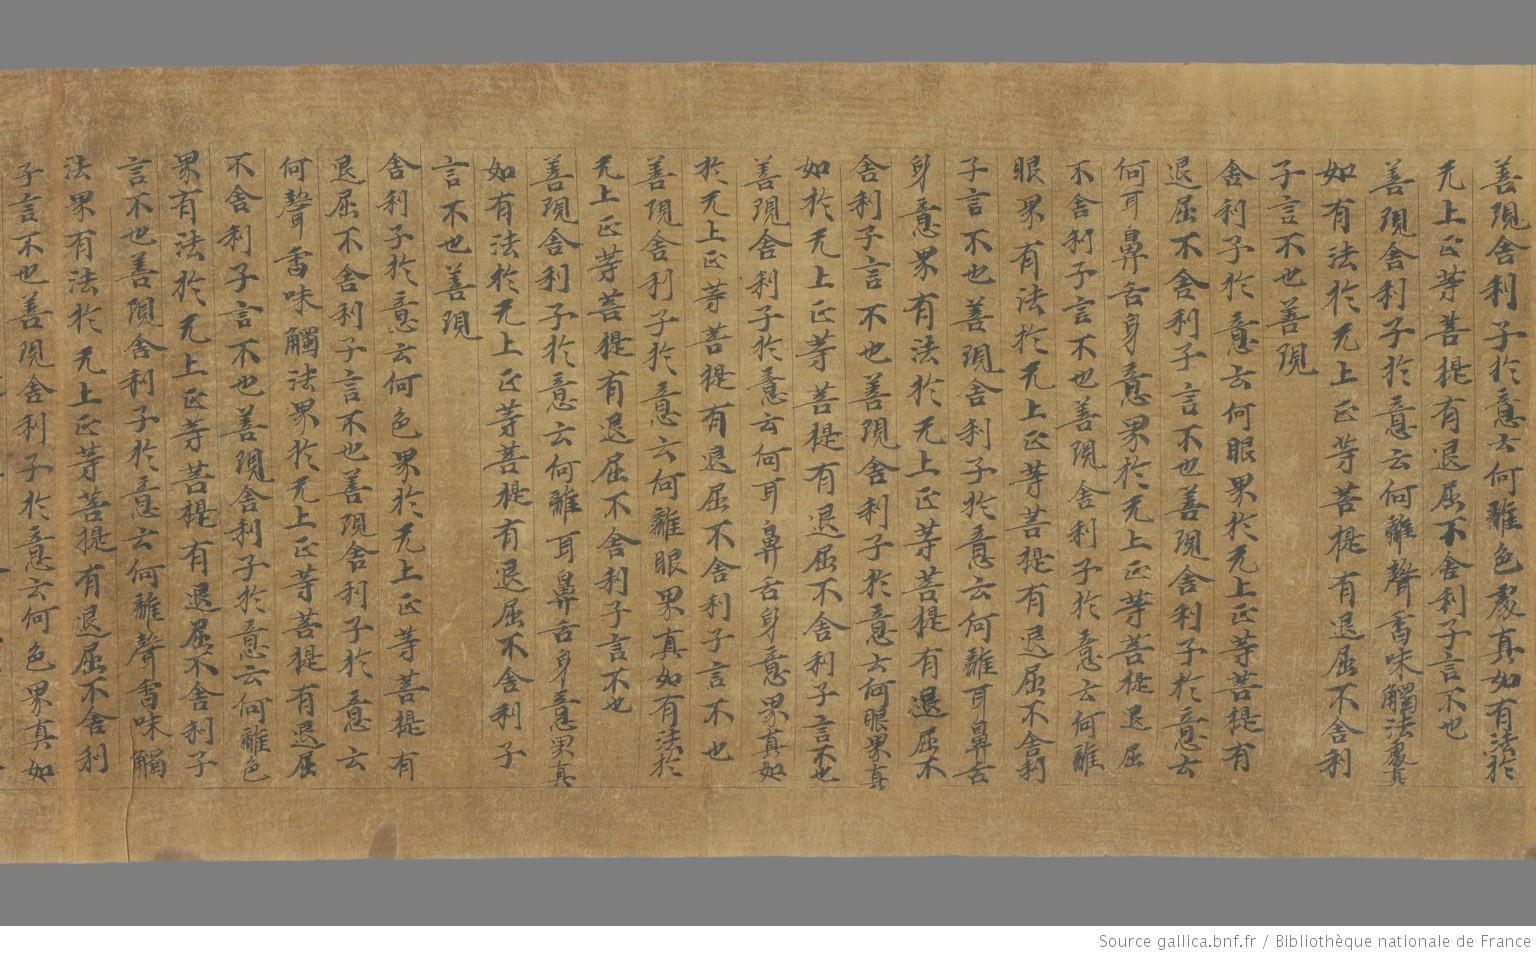 善現舍利子於意云何離色處真如有法於
无上正等菩提有退屈不舍利子言不也
善現舍利子於意云何離聲香味觸法處真
如有法於无上正等菩提有退屈不舍利
子言不也善現
舍利子於意云何眼界於无上正等菩提有
退屈不舍利子言不也善現舍利子於意云
何耳鼻舌身意界於无上正等菩提退屈
不舍利子言不也善現舍利子於意云何離
眼界有法於无上正等菩提有退屈不舍利
子言不也善現舍利子於意云何離耳鼻舌
身意界有法於无上正等菩提有退屈不
舍利子言不也善現舍利子於意云何眼界真
如於无上正等菩提有退屈不舍利子言不也
善現舍利子於意云何耳鼻舌身意界真如
於无上正等菩提有退屈不舍利子言不也
善現舍利子於意云何離眼界真如有法於
无上正等菩提有退屈不舍利子言不也
善現舍利子於意云何離耳鼻舌身意界真
如有法於无上正等菩提有退屈不舍利子
言不也善現
舍利子於意云何色界於无上正等菩提有
退屈不舍利子言不也善現舍利子於意云
何聲香味觸法界於无上正等菩提有退屈
不舍利子言不也善現舍利子於意云何離色
界有法於无上正等菩提有退屈不舍利子
言不也善現舍利子於意云何離聲香味觸
法界有法於无上正等菩提有退屈不舍利
子言不也善現舍利子於意云何色界真如
Source gallica.bnf.fr / Bibliothèque nationale de France